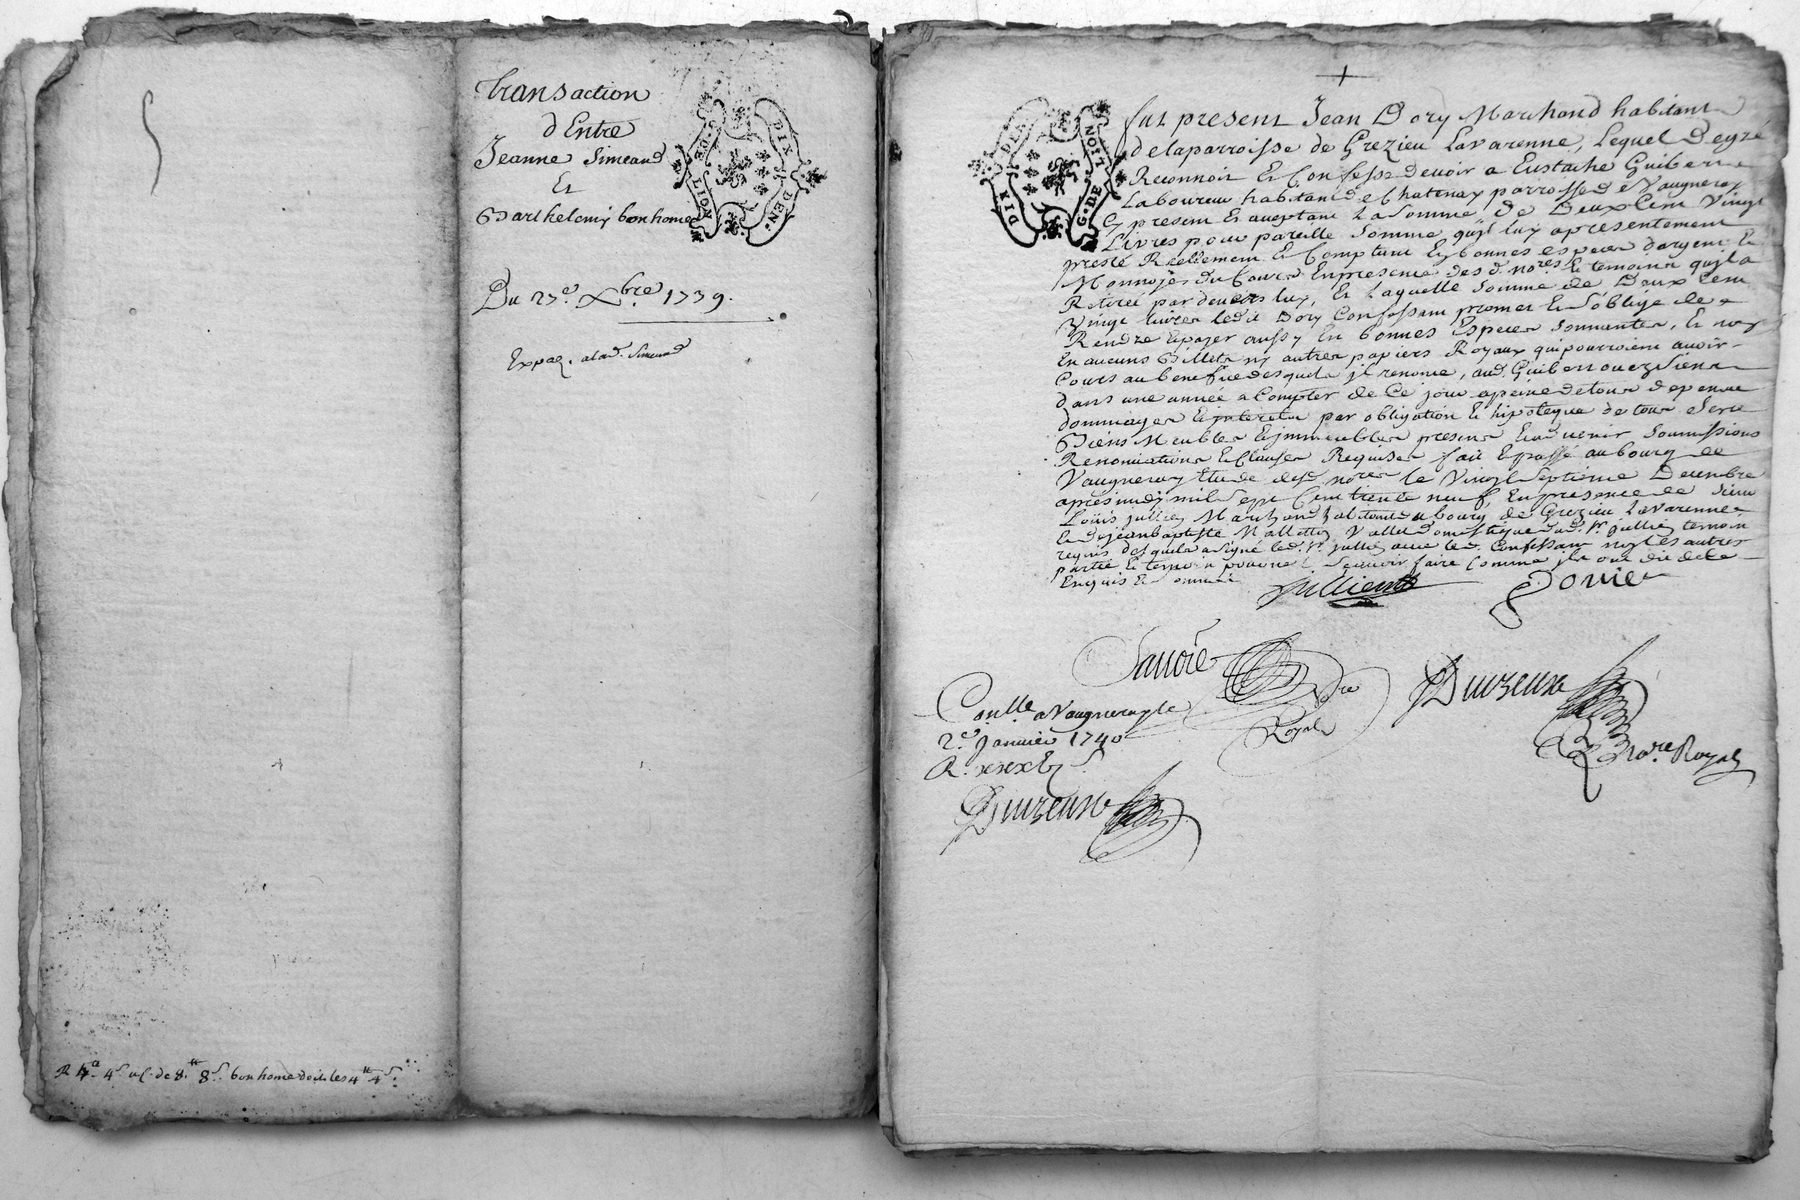 Transaction
d'Entre
Jeanne Simeand
Et
Barthelemy bonhome
G. DE LION DIX DEN.
Du 27e. Xbre 1739.
Expée. a lad. Simeand
R 4# 4s. de 8# 8s. bonhome doit les 4# 4s.
+
G. DE LION DIX DEN.
fut present Jean Dory Marchand habitant
de la parroisse de Grezieu Lavarenne, Lequel De gré
Reconnoit Et Confesse devoir a Eustache Guibert
Laboureur habitant de Chatenay parroisse de Vaugneray
Cy present Et aceptant La Somme de Deux Cent Vingt
Livres pour pareille Somme quil luy a presentement
presté Reellement Et Comptant En bonnes especes d'argent Et
Monnoyes du Cours En presence des d. nores. Et temoins quil a
Retirée par devers luy, Et Laquelle Somme de Deux Cent
Vingt livres ledit Dory Confessant promet Et S'oblige de
Rendre Et payer aussy En bonnes Especes Sonnantes, Et non
En aucuns Billets ny autres papiers Royaux qui pourroient avoir
Cours au benefice desquels jl renonce, aud. Guibert ou ez Siens
dans une année a Compter de Ce jour a peine de tous depens
dommages Et jnterests par obligation Et hipoteque de tous Ses
Biens Meubles Et jmmeubles presents Et advenir Soumissions
Renonciations Et Clauses Requises fait Et passé au bourg de
Vaugneray Etude desd. nores le Vingt Septieme Decembre
apres midy mil Sept Cent trente neuf En presence de Sieur
Loüis jullien Marchand habitant au bourg de Grezieu Lavarenne
Et de jean baptiste Valet Domestique dud. Sr. jullien temoins
requis desquels a Signé led. Sr. jullien avec led. Confessant non les autres
partie Et temoin pour ne Scavoir faire Comme jls ont dit de ce
Enquis Et Sommé
Jullien Dorier
Nre
Royal
Nore. Royal
Conllé a Vaugneray le
2e. Janvier 1740